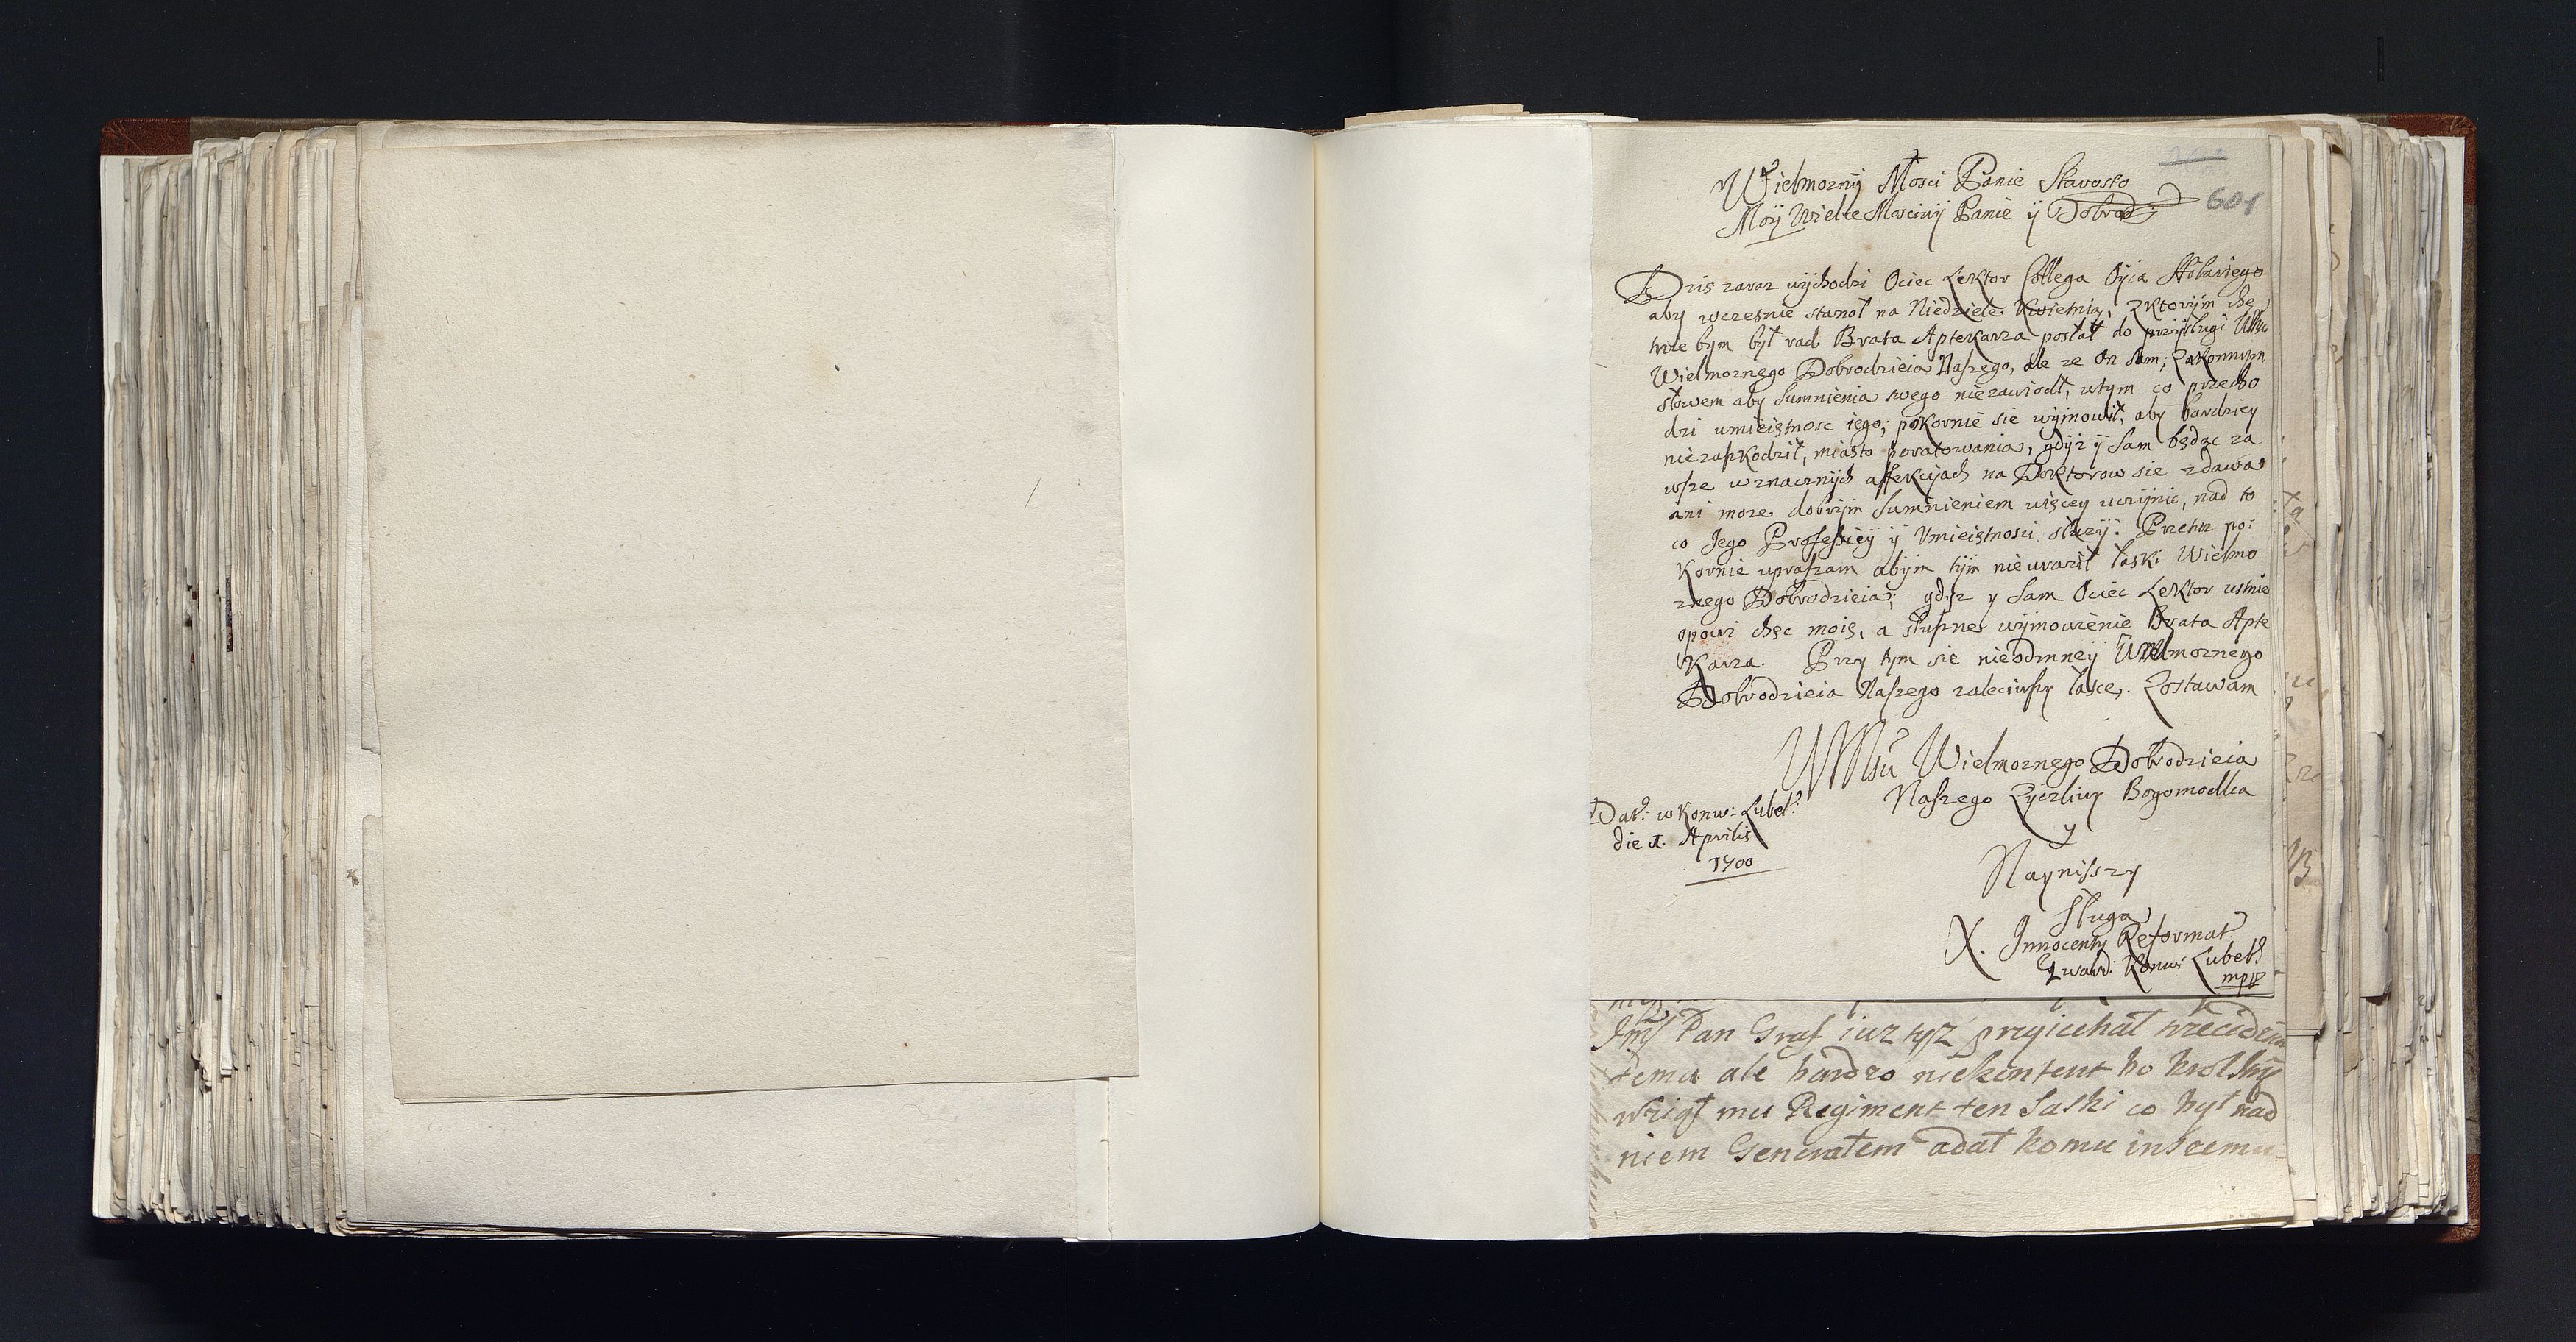 601
Wielmozny Mosci Panie Starosto
Moÿ Wielce Mosciwÿ Panie ÿ Dobrodz:
Dzis zaraz wÿchodzi Ociec Lektor Collega Oÿca Stolarsego
aby wczesnie stanoł na Niedziele Kwietnią, zktorÿm chę
tnie bÿm bÿł rad Brata Aptekarza posłał do przÿsługi
Wielmoznego Dobrodzieia Naszego, ale ze On Sam, Zakonnym
słowem aby Sumnienia swego niezawiodł, wtym co przecho
dzi umieiętnosc iego, pokornie sie wÿmowił, aby bardziey
niezaszkodził, miasto poratowania, gdÿz ÿ Sam będąc za
wsze wznacznÿch affekcÿach na Doktorow sie zdawa
ani moze dobrÿm Sumnieniem więcey uczÿnic, nad to
co Jego Professiey ÿ Umieiętnosci słuzÿ. Przeto po:
kornie upraszam abÿm tÿm nieuraził łaski Wielmo
znego Dobrodzieia; gdÿz y Sam Ociec Lektor ustnie
opowi chęc moię, a słuszne wÿmowienie Brata Apte
karza. Przy tym sie nieodmney Wielmoznego
Dobrodzieia Naszego zaleciwszy łasce, Zostawam
Wielmoznego Dobrodzieia
Naszego Zyczliwy Bogomodlca
y
Nayniszzy
Sługa
X. Innocenty Reformat
Gward: Konw: Lubel:
mpp
Dat: w Konw: Lubel:
die 1. Aprilis
1700
Pan Graf iuz tyz przyiechał
temu ale bardzo niekontent bo krol
wziął mu Regiment ten Saski co był nad
niem Generałem adał komu inszemu